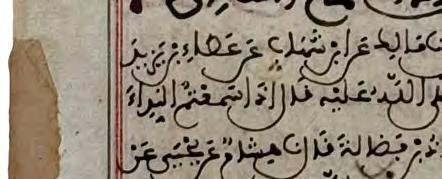 نا مالك عن ابن شهاب عن عطاء بن يزيد
الله عليه قال اذا سمعتم النداء
بن فضالة قال نا هشام عن يحيى عن